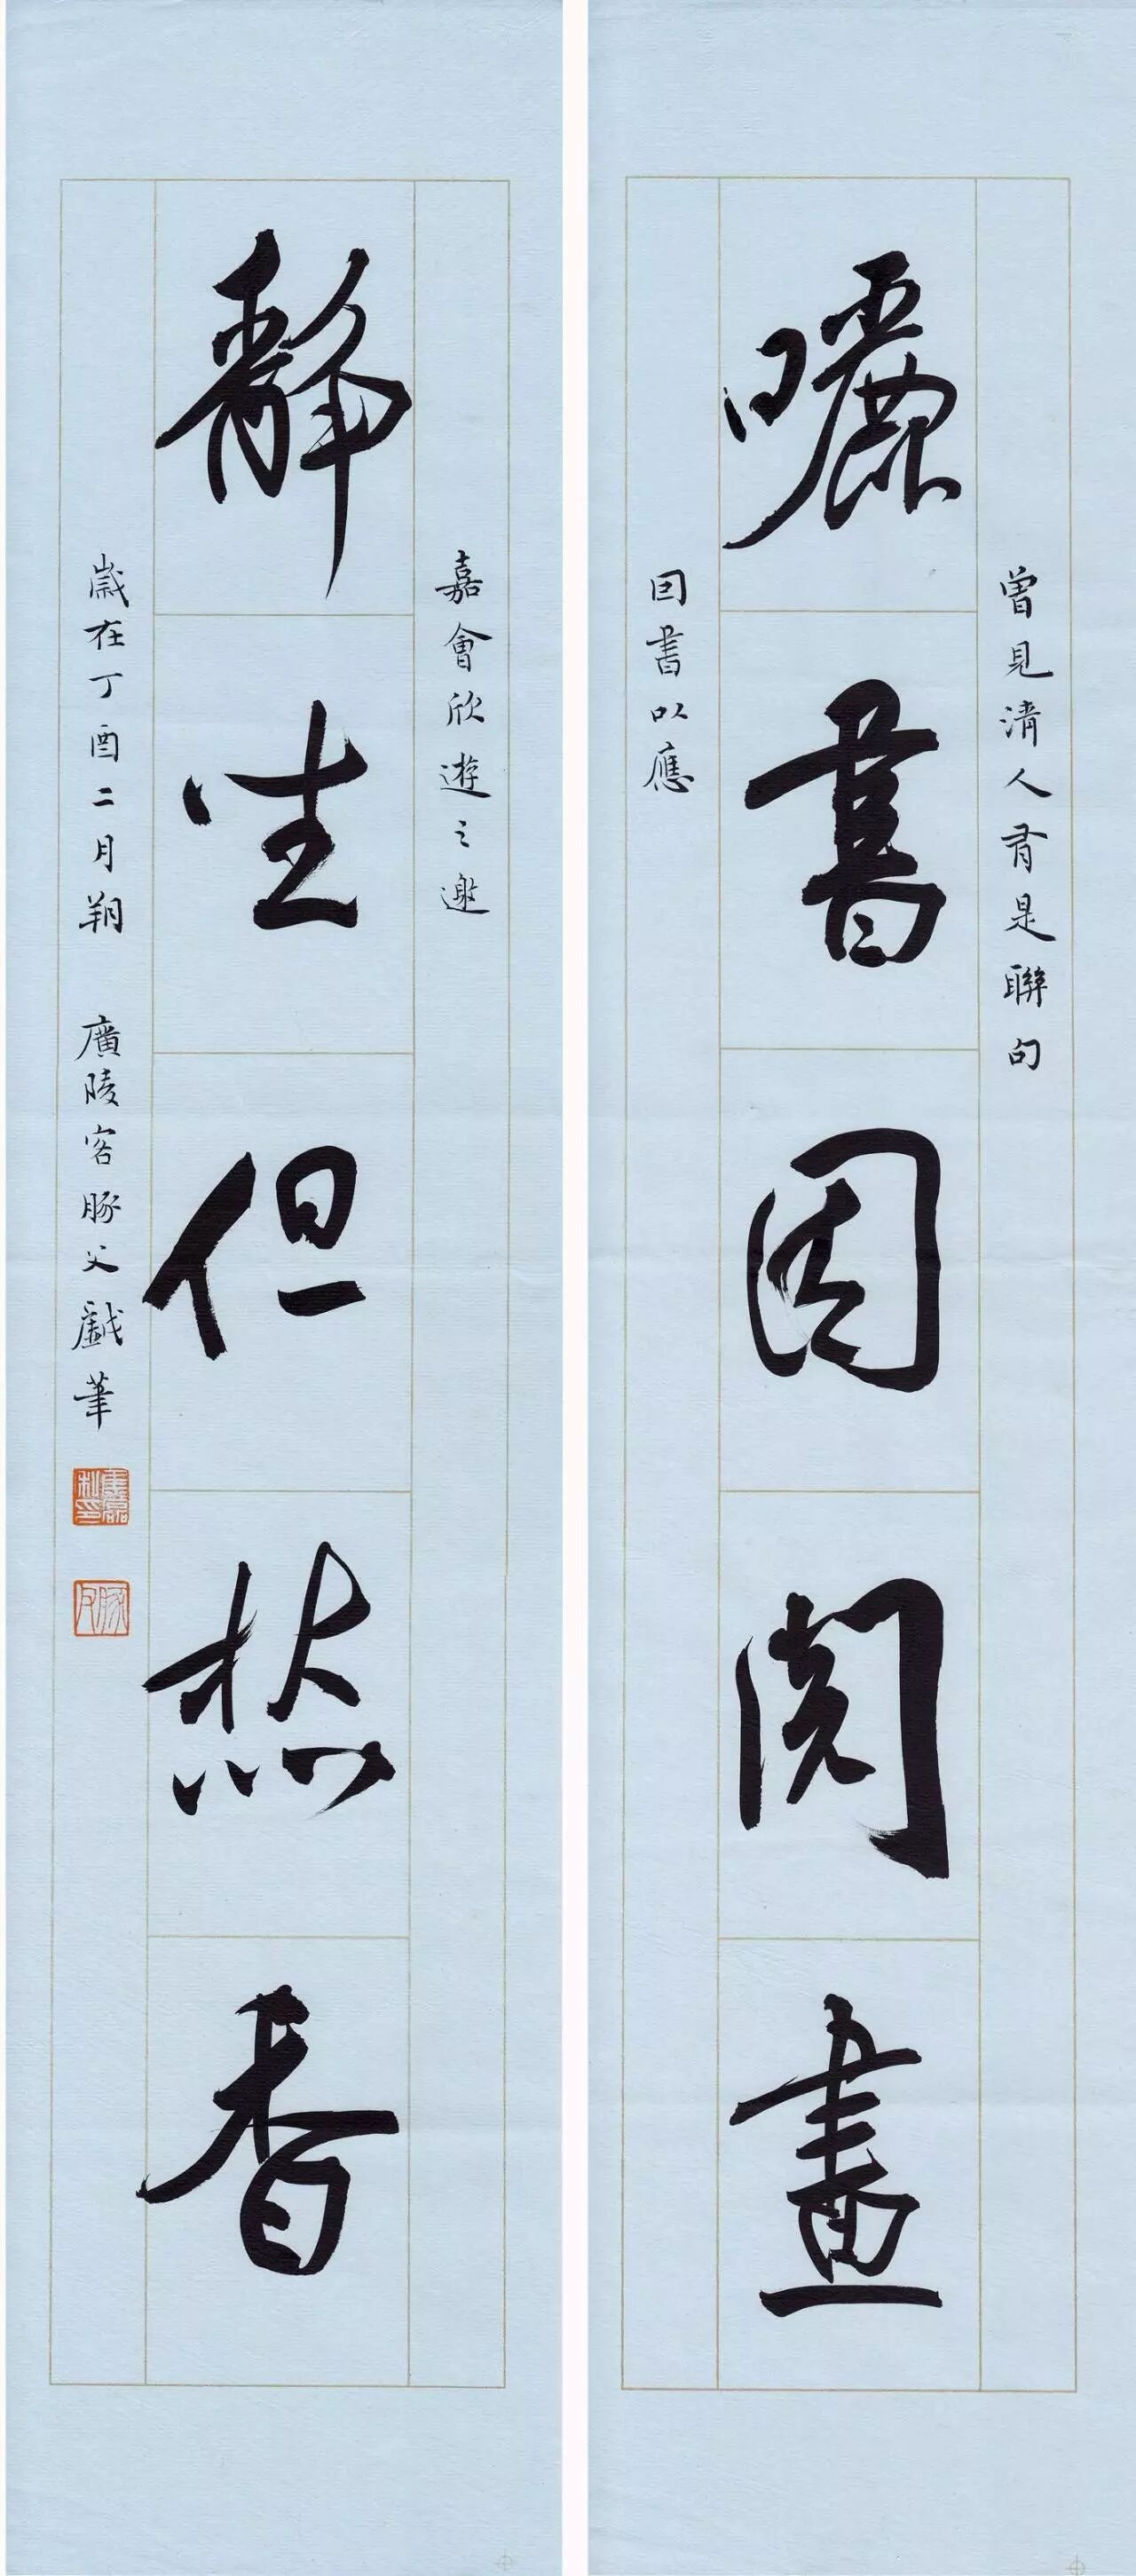 曾見清人有是聯句
曬書因閱畫
囙書以應
嘉會欣遊之邀
靜坐但焚香
歲在丁酉二月朔 廣陵客豚父戲筆
豚父